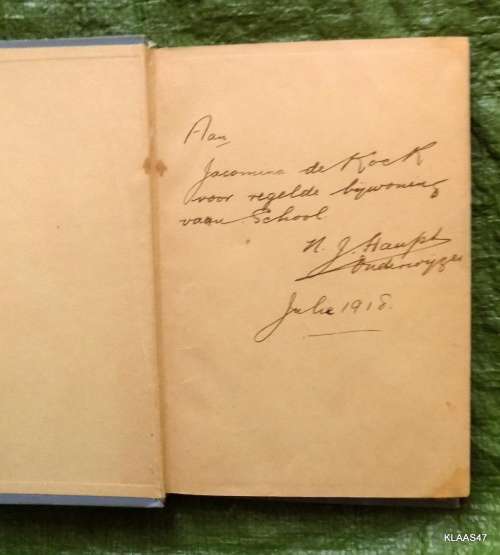 Aan
Jacomina de Kock
voor regelde bijwoning
vaan School
N. J. Haupt
Onderwyzer
Julie 1918.
KLAAS47